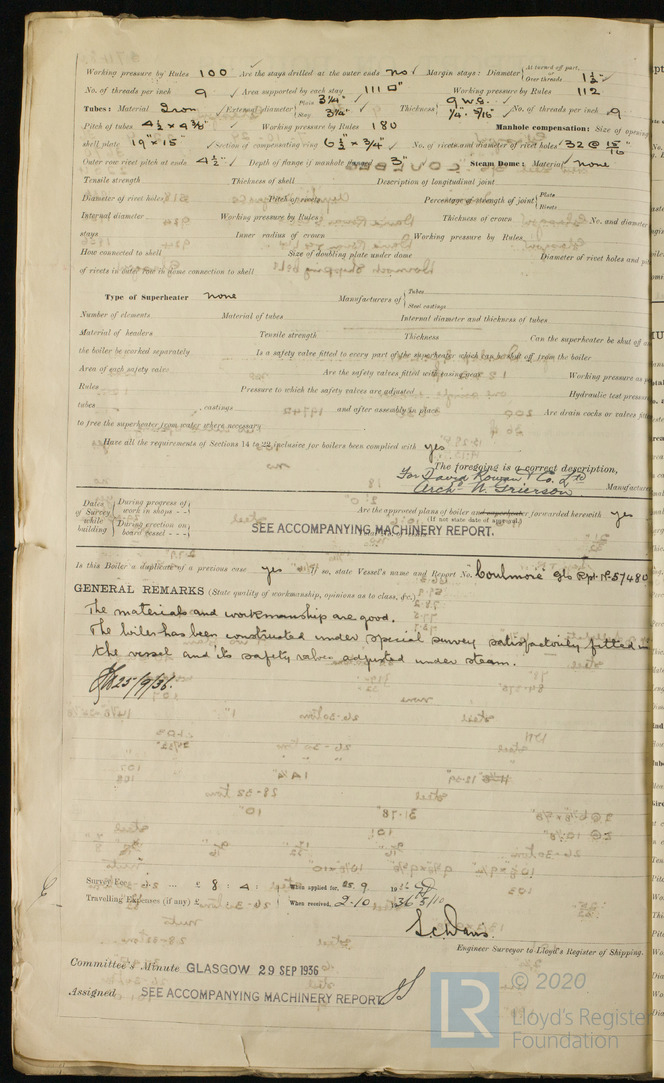 Working pressure by Rules 100 Are the stays drilled at the outer ends no Margin stays: Diameter { At turned off part, or Over threads 1½"
No. of threads per inch 9 Area supported by each stay 111 □" Working pressure by Rules 112
Tubes: Material Iron External diameter { Plain 3¼" Stay 3¼" Thickness { 9 W.G. ¼" 5/16" No. of threads per inch 9
Pitch of tubes 4½ x 4⅜" Working pressure by Rules 180 Manhole compensation: Size of opening
shell plate 19" x 15" Section of compensating ring 6½ x ¾" No. of rivets and diameter of rivet holes 32 @ 15/16"
Outer row rivet pitch at ends 4½" Depth of flange if manhole flanged 3" Steam Dome: Material none
Tensile strength Thickness of shell Description of longitudinal joint
Diameter of rivet holes Pitch of rivets Percentage of strength of joint { Plate Rivets
Internal diameter Working pressure by Rules Thickness of crown No. and diameter
stays Inner radius of crown Working pressure by Rules
How connected to shell Size of doubling plate under dome Diameter of rivet holes and
of rivets in outer row in dome connection to shell
Type of Superheater none Manufacturers of { Tubes Steel castings
Number of elements Material of tubes Internal diameter and thickness of tubes
Material of headers Tensile strength Thickness Can the superheater be shut off
the boiler be worked separately Is a safety valve fitted to every part of the superheater which can be shut off from the boiler
Area of each safety valve Are the safety valves fitted with easing gear Working pressure as
Rules Pressure to which the safety valves are adjusted Hydraulic test pressure
tubes castings and after assembly in place Are drain cocks or valves fitted
to free the superheater from water where necessary
Have all the requirements of Sections 14 to 22 inclusive for boilers been complied with yes
The foregoing is a correct description,
For David Rowan & Co. Ltd
Archd. W. Grierson Manufacturer
Dates of Survey while building { During progress of work in shops - - During erection on board vessel - - -
Are the approved plans of boiler and superheater forwarded herewith yes
(If not state date of approval.)
SEE ACCOMPANYING MACHINERY REPORT.
Is this Boiler a duplicate of a previous case yes If so, state Vessel's name and Report No. Coulmore Gls Rpt. No. 57480
GENERAL REMARKS (State quality of workmanship, opinions as to class, &c.)
The materials and workmanship are good.
The boiler has been constructed under special survey satisfactorily fitted in
the vessel and its safety valves adjusted under steam.
25/9/36.
Survey Fee ... £ 8 : 4 : When applied for, 25.9 1936
Travelling Expenses (if any) £ : : When received, 2-10 1936
Engineer Surveyor to Lloyd's Register of Shipping.
Committee's Minute GLASGOW 29 SEP 1936
Assigned SEE ACCOMPANYING MACHINERY REPORT.
LR © 2020
Lloyd's Register
Foundation